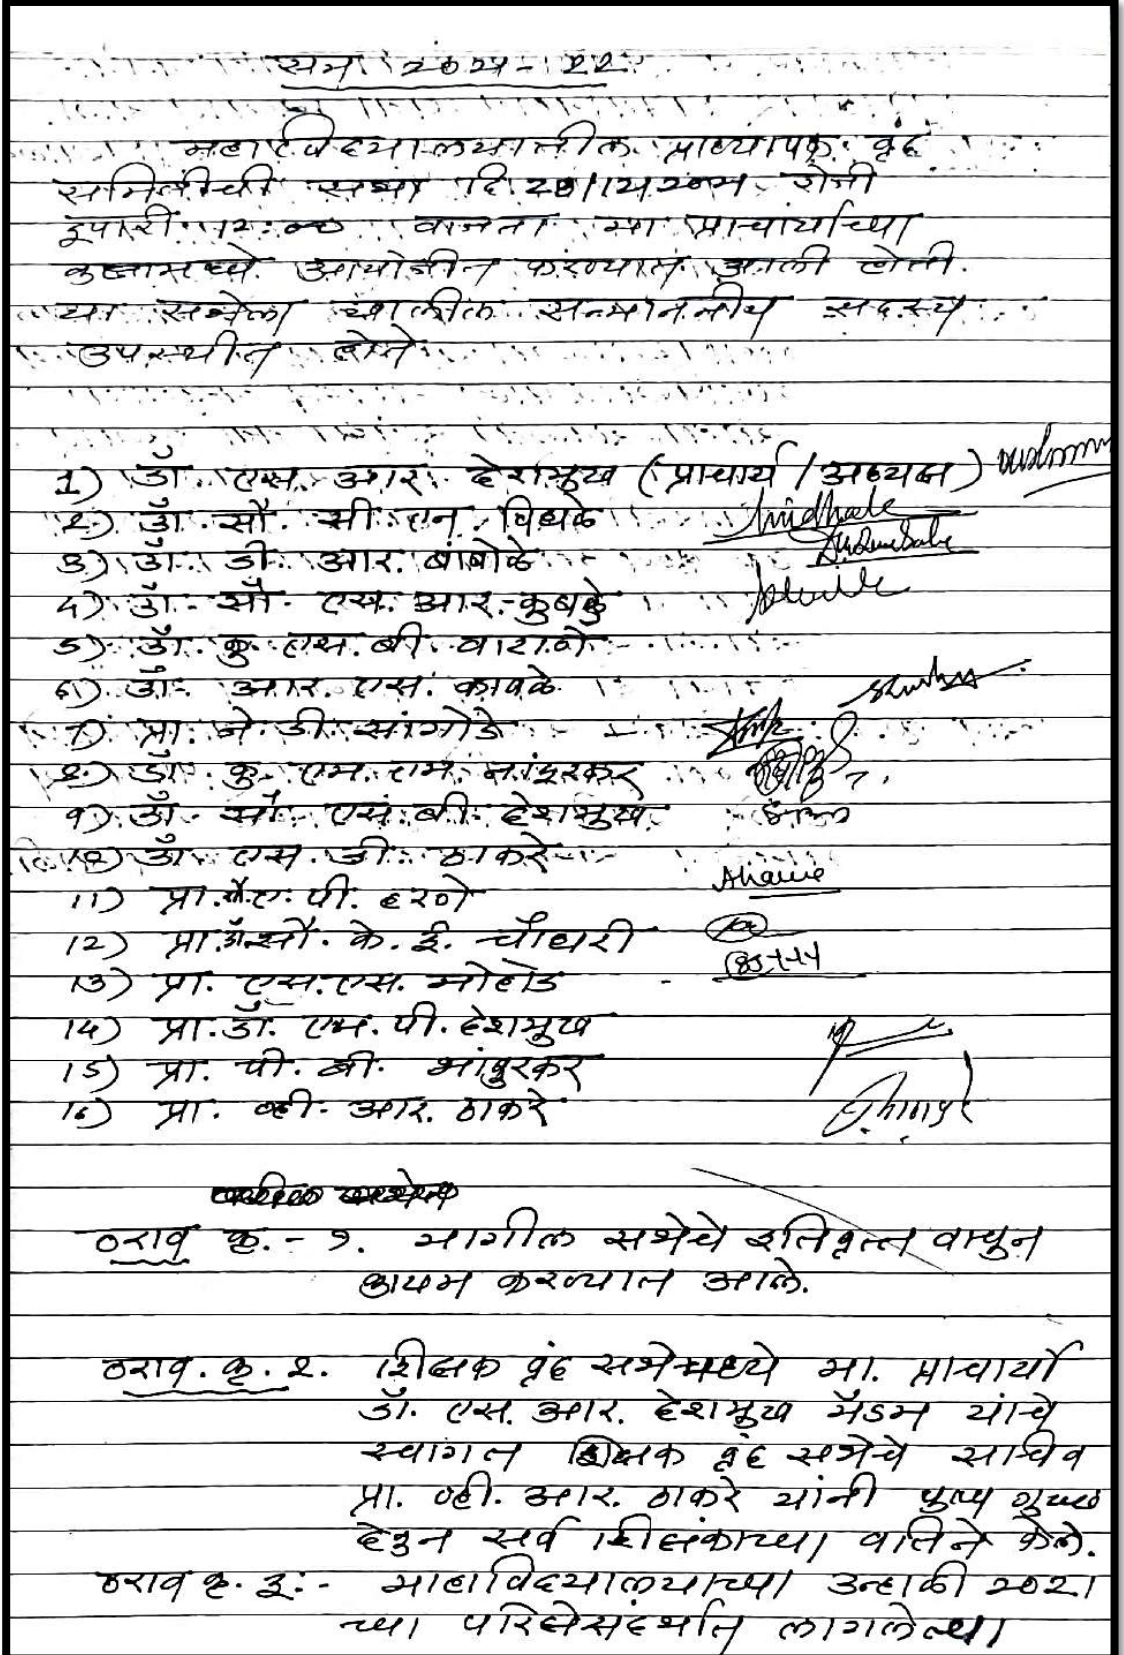 सत्र २०२१-२२
महाविद्यालयातील प्राध्यापक वृंद
समितीची सभा दि. रोजी
दुपारी १२:०० वाजता मा प्राचार्यांच्या
कक्षामध्ये आयोजीत करण्यात आली होती.
या सभेला खालील सन्माननीय सदस्य
उपस्थीत होते
1) डॉ. एस. आर. देशमुख (प्राचार्य / अध्यक्ष)
२) डॉ. सौ. सी एन. विधळे
3) डॉ. डी. आर. बांबोळे
4) डॉ. सौ. एस. आर. कुबळे
5) डॉ. कु एस. बी
6) डॉ. आर. एस. कावळे
7) प्रा. जे. डी. सांगोडे
८) डॉ. कु. एम. एम. नांदुरकर
9) डॉ. सौ. एस. बी. देशमुख
१०) डॉ एस. डी. ठाकरे
11) प्रा. सौ. ए. पी. हरणे
12) प्रा. डॉ. सौ. के. ई. चौधरी
13) प्रा. एस. एस. मोहोड
14) प्रा. डॉ. एम. पी. देशमुख
15) प्रा. पी. बी.
16) प्रा. व्ही. आर. ठाकरे
ठराव क्र. - १. मागील सभेचे इतिवृत्त वाचुन
कायम करण्यात आले.
ठराव. क्र. २. शिक्षक वृंद सभेमध्ये मा. प्राचार्या
डॉ. एस. आर. देशमुख मॅडम यांचे
स्वागत शिक्षक वृंद सभेचे सचिव
प्रा. व्ही. आर. ठाकरे यांनी पुष्प गुच्छ
देवुन सर्व शिक्षकांच्या वतिने केले.
ठराव क्र. ३:- माहाविद्यालयाच्या उन्हाळी २०२१
च्या परिक्षेसंदर्भात लागलेल्या